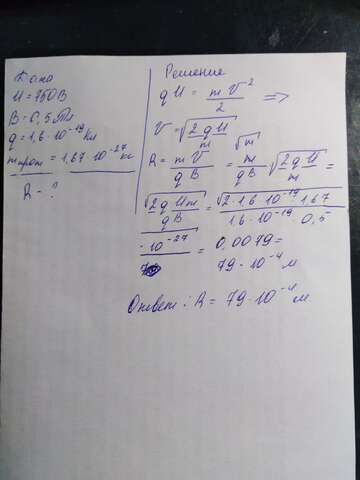 Дано
U = 750 В
B = 0,5 Тл
q = 1,6 · 10⁻¹⁹ Кл
m прот = 1,67 · 10⁻²⁷ кг
R - ?
Решение
qU = mV²/2 =>
V = √(2qU/m)
R = mV/qB = m/qB √(2qU/m) =
√(2qUm)/qB = √(2 · 1,6 · 10⁻¹⁹ · 1,67
1,6 · 10⁻¹⁹ · 0,5
· 10⁻²⁷ = 0,0079 =
79 · 10⁻⁴ м
Ответ: R = 79 · 10⁻⁴ м